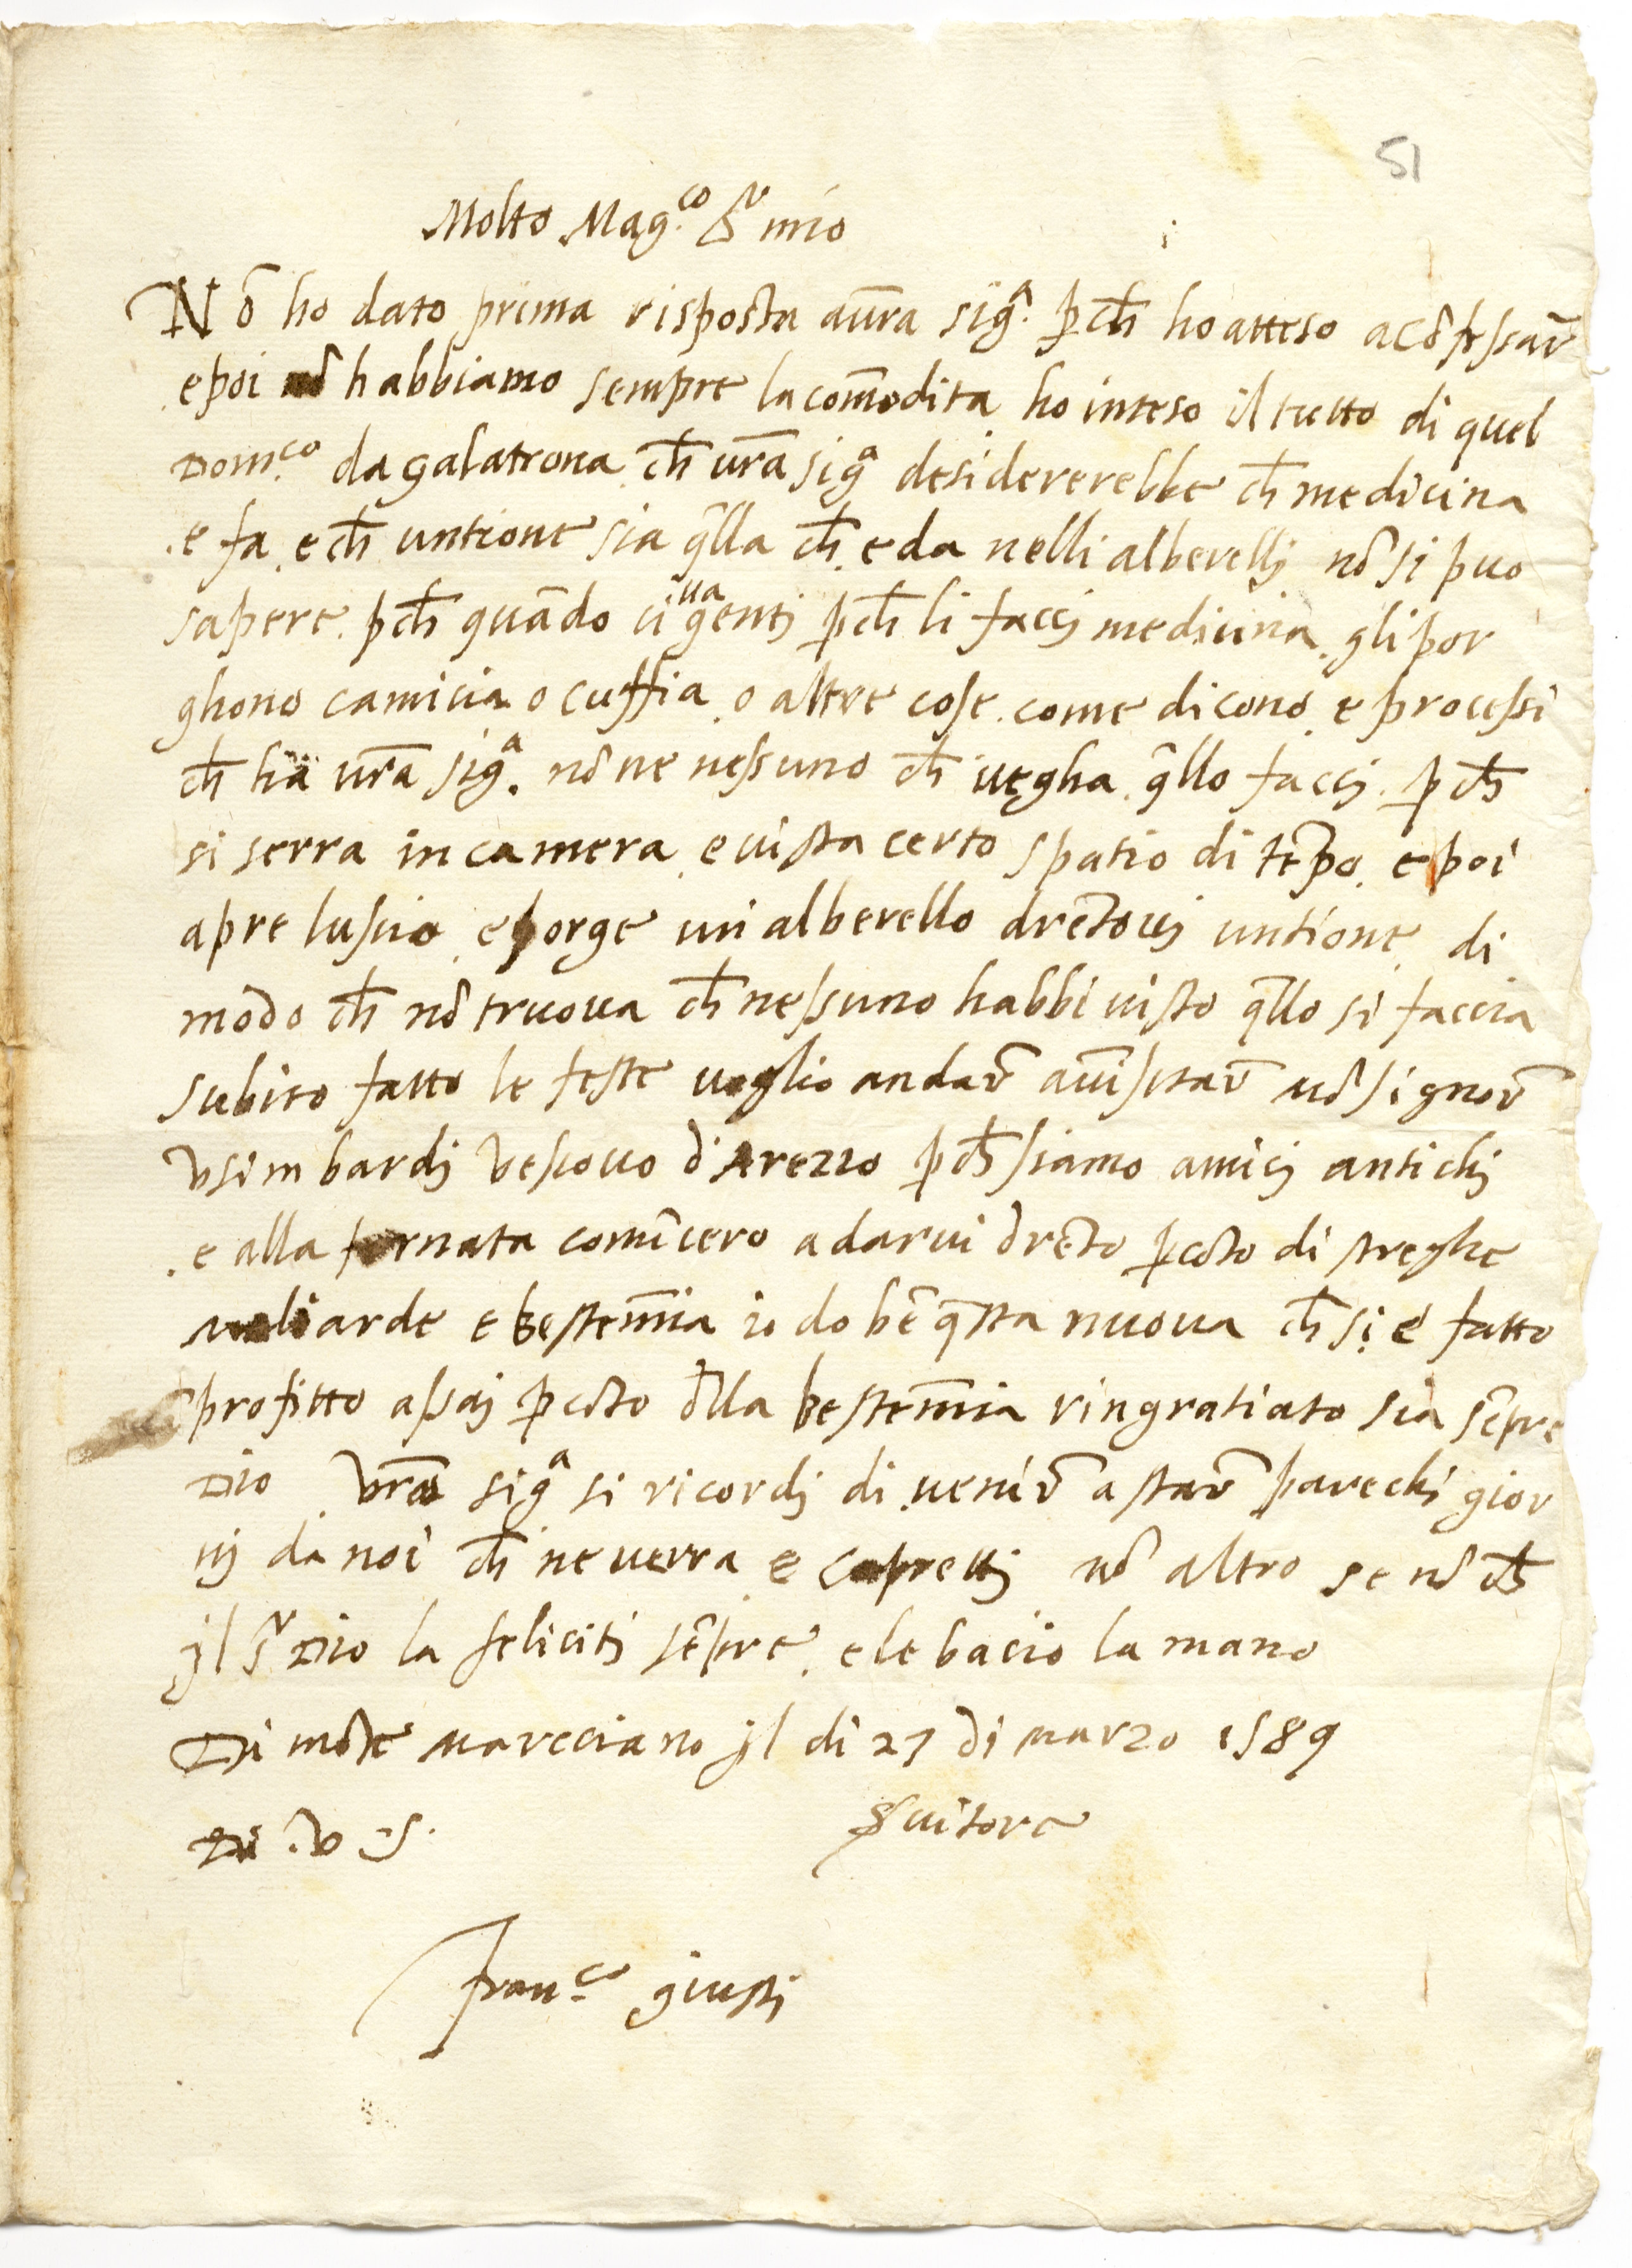 51
Molto Mag.co Sr mio
Nō ho dato prima risposta avr̄a sig.a p̄ch̄ ho atteso acōfessar̄
e poi nō habbiamo sempre la com̄odita ho inteso il tutto di quel
Dom.co da galatrona ch̄ vr̄a siga desidererebbe ch̄ medicina
e fa e ch̄ untione sia q̄lla ch̄ e da nelli alberelli nō si puo
sapere p̄ch̄ quādo ci va genti p̄ch̄ li facci medicina gli por
ghono camicia o cuffia o altre cose come dicono e processi
ch̄ ha vr̄a sig.a nō ne nessuno ch̄ vegha q̄llo facci p̄ch̄
si serra in camera e vi sta certo spatio di tēpo e poi
apre luscio e porge un alberello drētovi untione di
modo ch̄ nō truova ch̄ nessuno habbi visto q̄llo si faccia
subito fatto le feste voglio andar̄ avisitar̄ mōsignor̄
vsimbardi vescovo d'Arezzo p̄ch̄ siamo amici antichi
e alla tornata comīcero a darvi drēto p̄ cōto di streghe
maliarde e bestem̄ia io do bē q̄sta nuova ch̄ si e fatto
profitto assai p̄ cōto d̄lla bestem̄ia ringratiato sia sēpre
Dio vr̄a siga si ricordi di venir̄ a star̄ parechi gior
ni da noi ch̄ ne verra e capretti nō altro se nō ch̄
jl sr Dio la feliciti sēpre e le bacio la mano
Di mōte marciano jl di 27 di marzo 1589
Di .v .S. servitore
Franc.co giusti